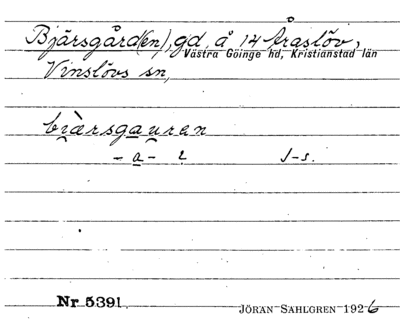 Bjärsgård(en), gd, å 14 Åraslöv,
Västra Göinge hd, Kristianstad län
Vinslövs sn,
bi̯àrsga̯u̯ren
- a̲ - ɩ J-s.
Nr 5391 JÖRAN SAHLGREN 1926